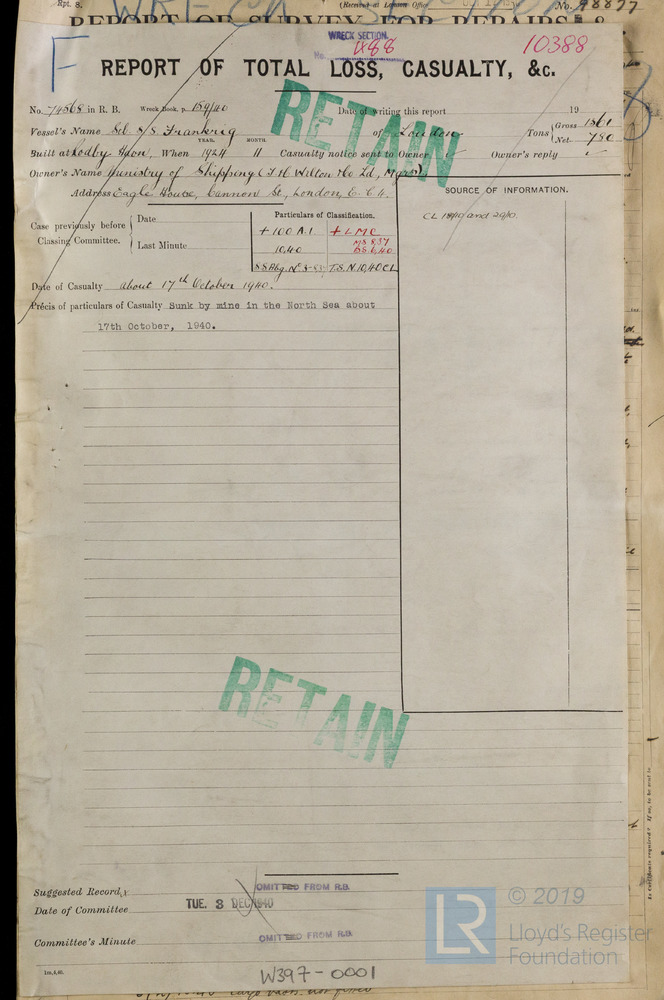 Rpt. 8.
(Received at London Office
No. 98877
REPORT OF SURVEY FOR REPAIRS &
WRECK SECTION.
No. 1488
10388
F
REPORT OF TOTAL LOSS, CASUALTY, &c.
No. 74568 in R. B. Wreck Book, p. 159/40 Date of writing this report 19
Vessel's Name Sc. S/S Frankrig of London Tons Gross 1361
Net 790
YEAR. MONTH.
Built at When 1924 11 Casualty notice sent to Owner Owner's reply
Owner's Name Ministry of Shipping (J H Welton & Co Ld, Mgrs)
Address Eagle House, Cannon St., London, E. C. 4.
SOURCE OF INFORMATION.
CL 18/10 and 29/10.
Case previously before Classing Committee.
Date
Last Minute
Particulars of Classification.
+ 100 A.1 + LMC
10,40 MS 8.37
BS 6,40
SS Hbg. No 3-8.37 T.S. N 10,40 CL
Date of Casualty about 17th October 1940.
Précis of particulars of Casualty Sunk by mine in the North Sea about
17th October, 1940.
RETAIN
RETAIN
Suggested Record
OMITTED FROM R.B.
Date of Committee TUE. 3 DEC 1940
Committee's Minute OMITTED FROM R.B.
1m,4,40.
W397-0001
LR
© 2019
Lloyd's Register
Foundation